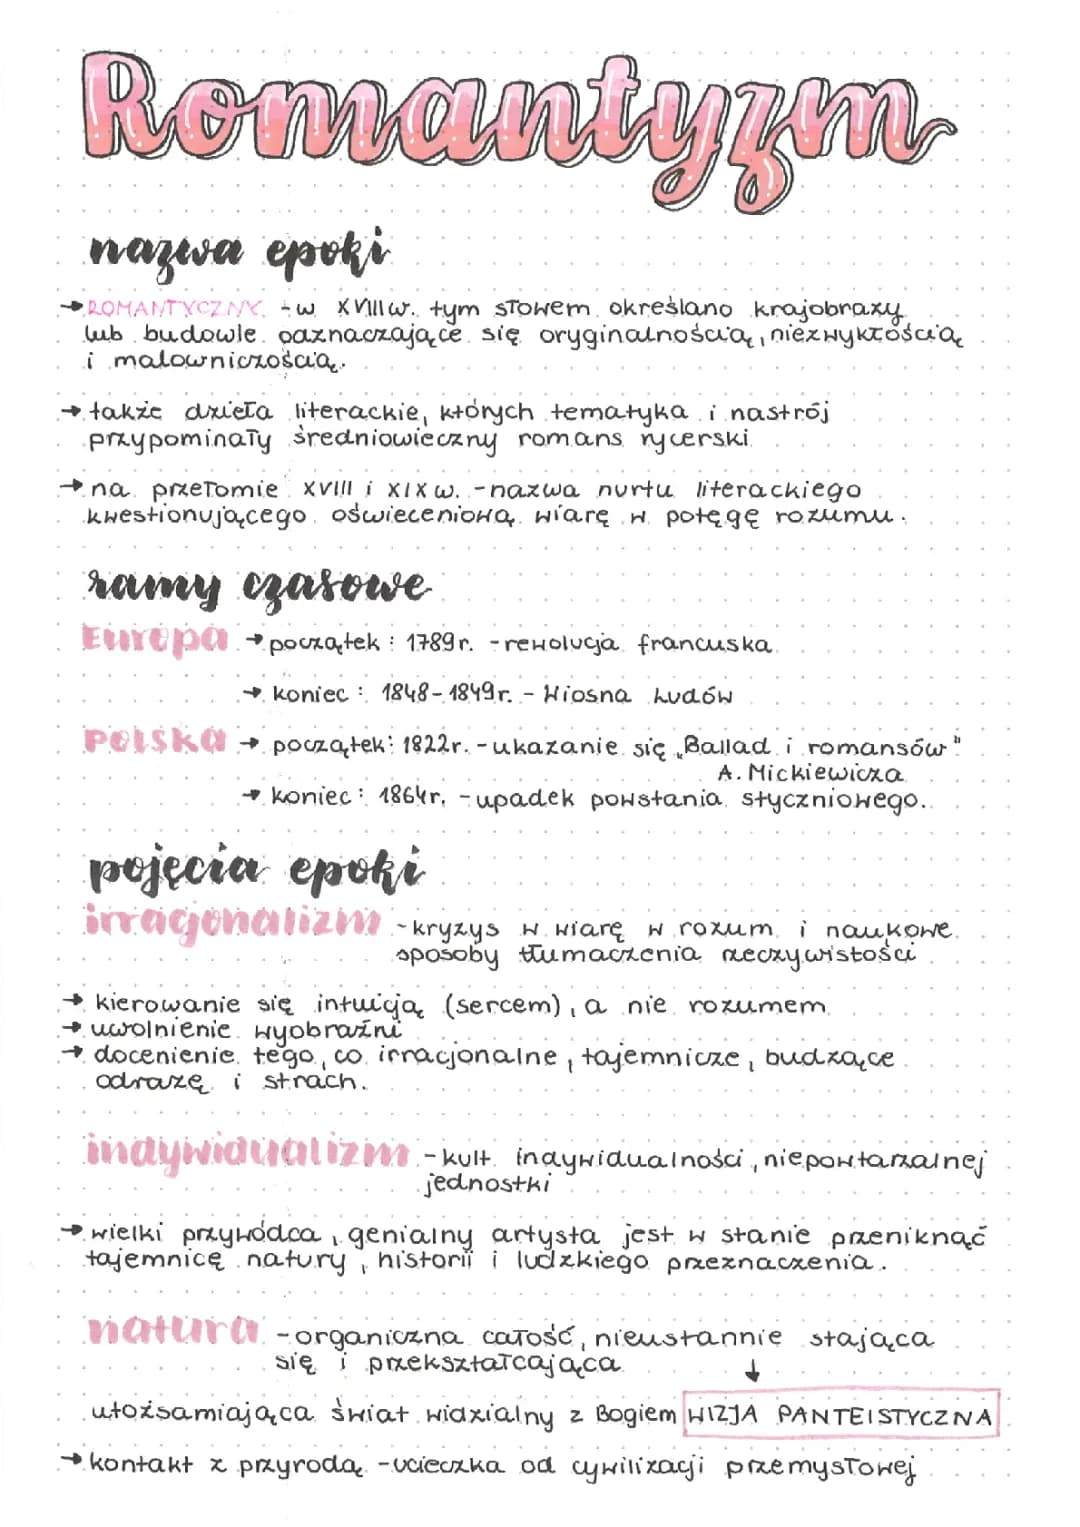 Romantyzm
nazwa epoki
→ ROMANTYCZNY - w XVIII w. tym słowem określano krajobrazy
lub budowle oaznaczające się oryginalnością, niezwykłością
i malowniczością.
→ także dzieła literackie, których tematyka i nastrój
przypominały średniowieczny romans rycerski
→ na przełomie XVIII i XIX w. - nazwa nurtu literackiego
kwestionującego oświeceniową wiarę w potęgę rozumu.
ramy czasowe
Europa → początek: 1789 r. - rewolucja francuska
→ koniec: 1848-1849 r. - Wiosna Ludów
Polska → początek: 1822 r. - ukazanie się „Ballad i romansów"
A. Mickiewicza
→ koniec: 1864 r. - upadek powstania styczniowego.
pojęcia epoki
irracjonalizm - kryzys w wiarę w rozum i naukowe
sposoby tłumaczenia rzeczywistości
→ kierowanie się intuicją (sercem), a nie rozumem
→ uwolnienie wyobraźni
→ docenienie tego, co irracjonalne, tajemnicze, budzące
odrazę i strach.
indywidualizm - kult indywidualności, niepowtarzalnej
jednostki
→ wielki przywódca, genialny artysta jest w stanie przeniknąć
tajemnicę natury, historii i ludzkiego przeznaczenia.
natura - organiczna całość, nieustannie stająca
się i przekształcająca ↓
utożsamiająca świat widzialny z Bogiem WIZJA PANTEISTYCZNA
→ kontakt z przyrodą - ucieczka od cywilizacji przemysłowej